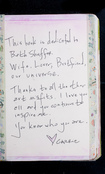 This book is dedicated to
Beth Sheffer.
Wife, Lover, Best friend,
our universe.
Thanks to all the other
art misfits I love you
all and you continue to
inspire me.
You know who you are.